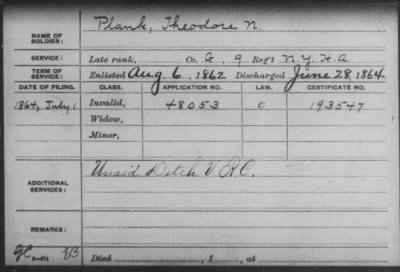 NAME OF SOLDIER: Plank, Theodore N.
SERVICE: Late rank, Co. G, 9 Reg't N.Y. H.A.
TERM OF SERVICE: Enlisted Aug. 6, 1862 Discharged June 28, 1864
DATE OF FILING. CLASS. APPLICATION NO. LAW. CERTIFICATE NO.
1864, July 1 Invalid, 48053 O 193547
Widow,
Minor,
ADDITIONAL SERVICES: Unas'd Detch V.R.C.
REMARKS:
Died , 1 , at